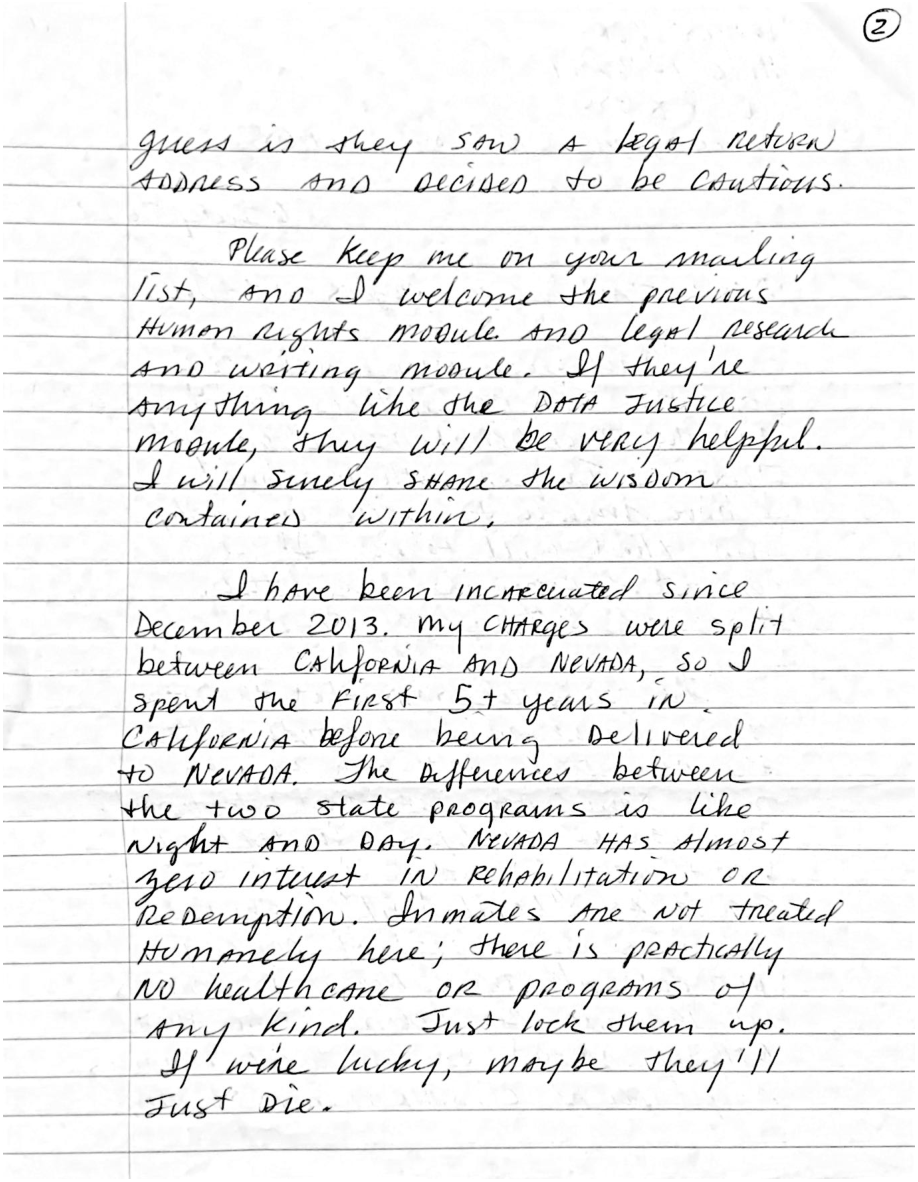 2
guess is they saw a legal return
address and decided to be cautious.
Please keep me on your mailing
list, and I welcome the previous
Human Rights module and legal research
and writing module. If they're
anything like the Data Justice
module, they will be very helpful.
I will surely share the wisdom
contained within.
I have been incarcerated since
December 2013. My charges were split
between California and Nevada, so I
spent the first 5+ years in
California before being delivered
to Nevada. The differences between
the two state programs is like
night and day. Nevada has almost
zero interest in rehabilitation or
redemption. Inmates are not treated
humanely here; there is practically
no healthcare or programs of
any kind. Just lock them up.
If we're lucky, maybe they'll
just die.